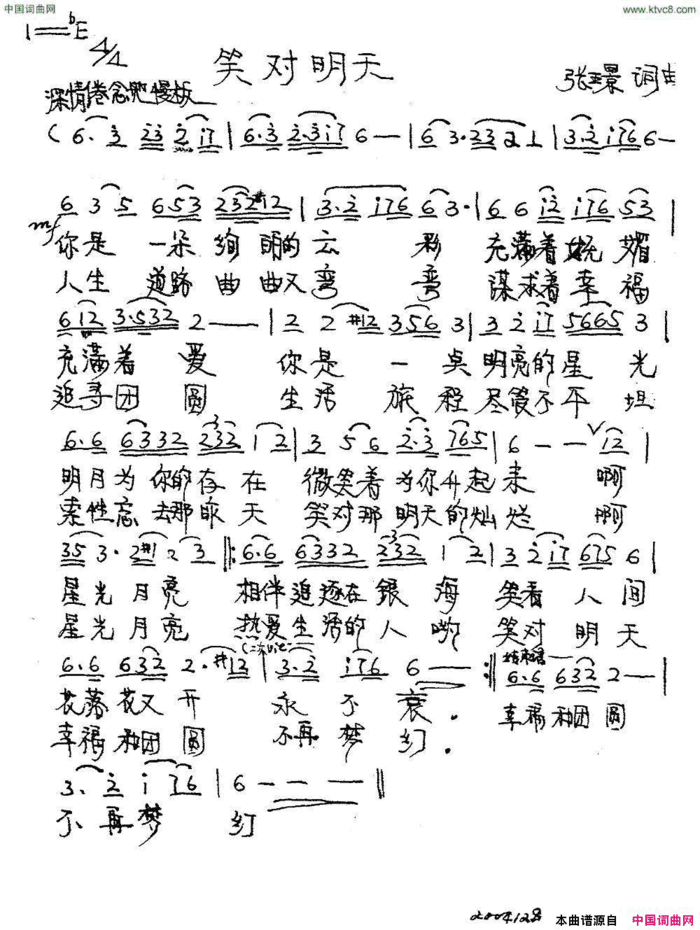 中国词曲网
www.ktvc8.com
1=bE
4/4
笑对明天
词曲
深情倦念地慢板
(6·3 23 2 i7 | 6·3 2·3i7 6 — | 6 3·23 2 1 | 3·2 i76 6—
6 3 5 653 232#12 | 3·2 i76 6 3· | 6 6 i2 i76 53 |
mf
你是 一朵 绚 明的 云 彩 充满着 妩媚
人生 道路 曲 曲又 弯 弯 谋求着 幸福
612 3·532 2—— | 2 2 #12 356 3 | 3 2 i7 5665 3 |
充满着 爱 你是 一 点 明亮的星 光
追寻团 圆 生活 旅 程 尽管不平 坦
6·6 6332 232 1 2 | 3 5 6 2·3 765 | 6 — — i2 |
明月为 你的存 在 微笑着 为你升起 来 啊
索性忘 去那昨 天 笑对那 明天的灿 烂 啊
35 3· 2#1 2 3 ‖: 6·6 6332 232 1 2 | 3 2 i7 675 6 |
星光 月亮 相伴追逐在 银 海 笑看 人 间
星光 月亮 热爱生活的 人 哟 笑对 明 天
6·6 632 2·#12 | 3·2 i76 6 — :‖ 6·6 632 2— |
结束句
花落花又 开 永 不 衰. 幸福和团 圆
幸福和团 圆 不再 梦 幻. 
3· 2 i 76 | 6 — — — ‖
不 再 梦 幻
本曲谱源自 中国词曲网